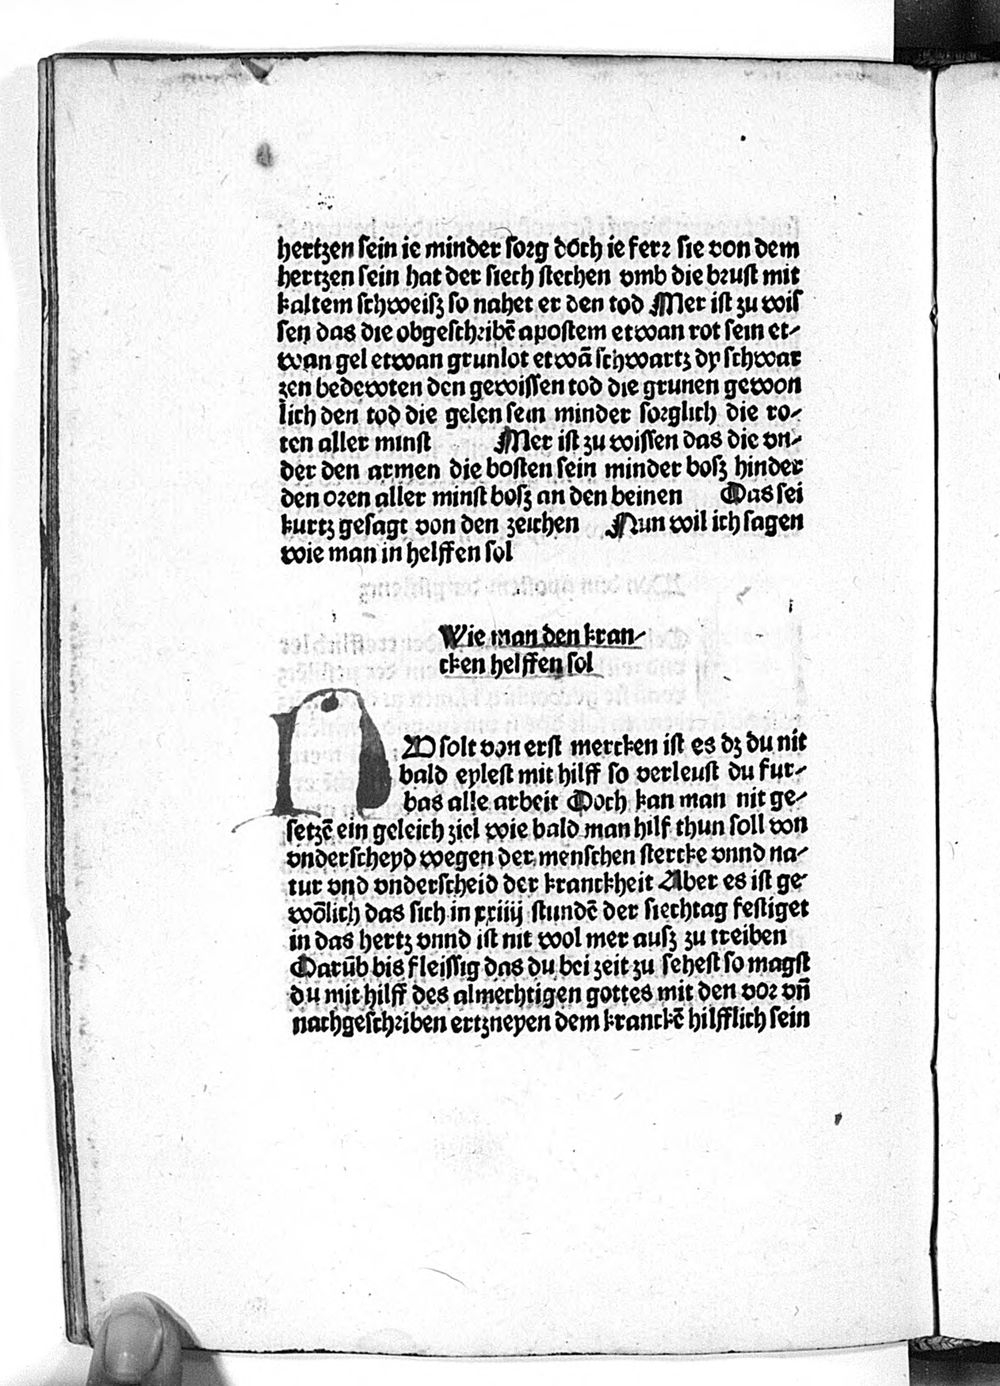 hertzen sein ie minder sorg doch ie ferr sie von dem
hertzen sein hat der siech stechen vmb die brust mit
kaltem schweisz so nahet er den tod Mer ist zu wis
sen das die obgeschribē apostem etwan rot sein et-
wan gel etwan grunlot etwā schwartz dy schwar
zen bedewten den gewissen tod die grunen gewon
lich den tod die gelen sein minder sorglich die ro-
ten aller minst Mer ist zu wissen das die vn-
der den armen die bosten sein minder bosz hinder
den oren aller minst bosz an den beinen Das sei
kurtz gesagt von den zeichen Nun wil ich sagen
wie man in helffen sol
Wie man den kran-
cken helffen sol
DV solt von erst mercken ist es dz du nit
bald eylest mit hilff so verleust du fur-
bas alle arbeit Doch kan man nit ge-
setzē ein geleich ziel wie bald man hilf thun soll von
vnderscheyd wegen der menschen stercke vnnd na-
tur vnd vnderscheid der kranckheit Aber es ist ge
wōlich das sich in xxiiij stundē der siechtag festiget
in das hertz vnnd ist nit wol mer ausz zu treiben
Darūb bis fleissig das du bei zeit zu sehest so magst
du mit hilff des almechtigen gottes mit den vor vn̄
nachgeschriben ertzneyen dem kranckē hilfflich sein